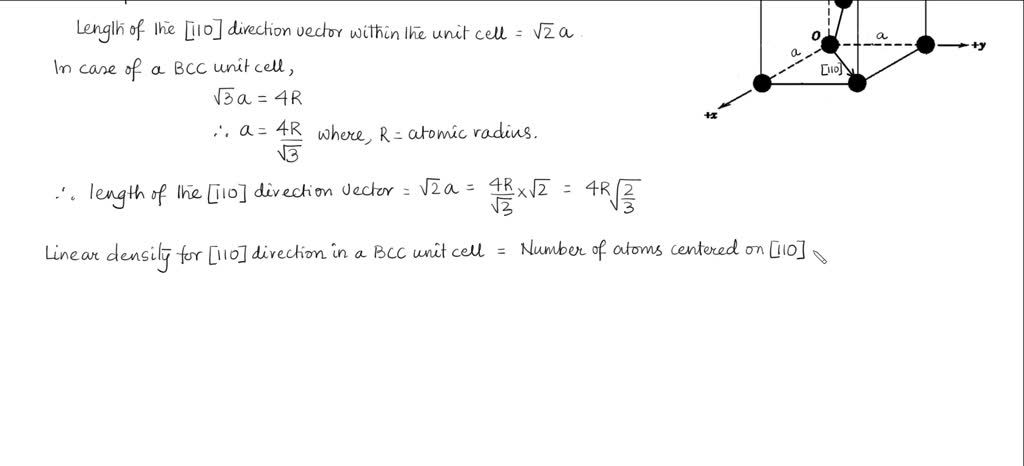 Length of the [110] direction vector within the unit cell = √2 a
In case of a BCC unit cell,
√3 a = 4R
∴ a = 4R/√3 where, R = atomic radius.
∴ length of the [110] direction vector = √2 a = 4R/√3 × √2 = 4R√(2/3)
Linear density for [110] direction in a BCC unit cell = Number of atoms centered on [110]
O
a
a
[110]
+y
+x